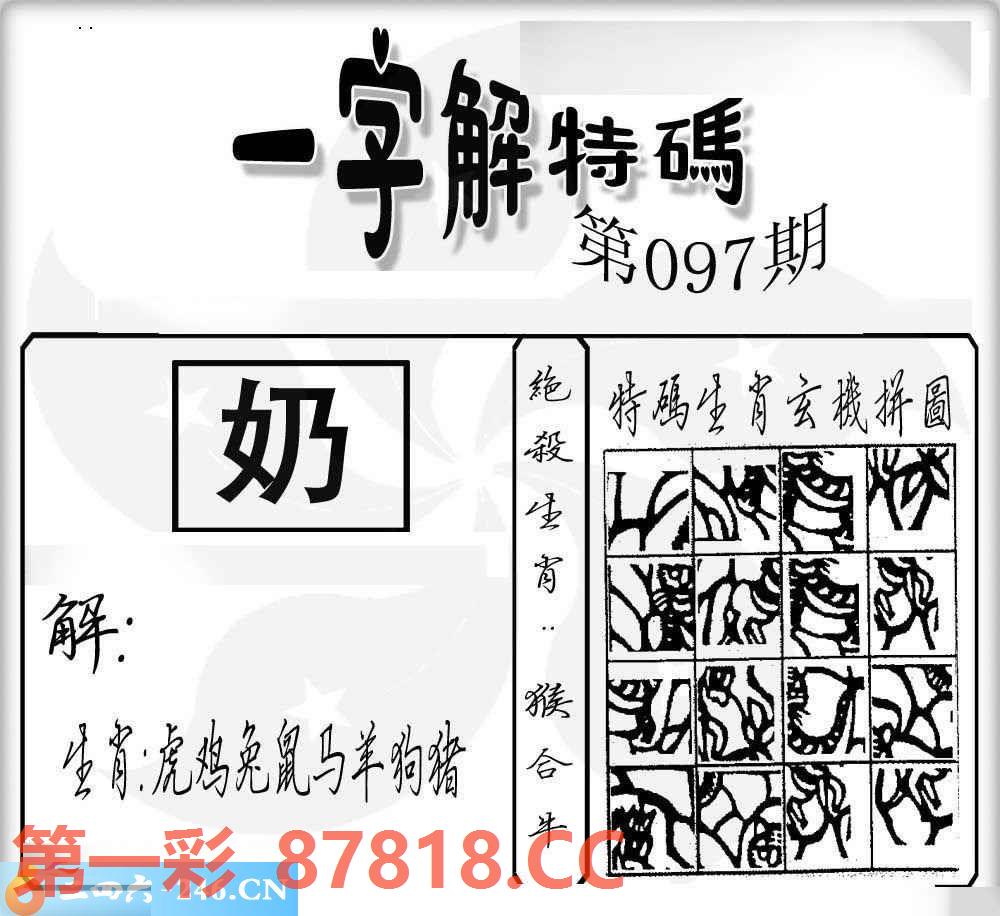 一字解特碼
第097期
奶
解:
生肖:虎鸡兔鼠马羊狗猪
絶殺生肖:猴合牛
特碼生肖玄機拼圖
第一彩 87818.CC
二四六 246.CN